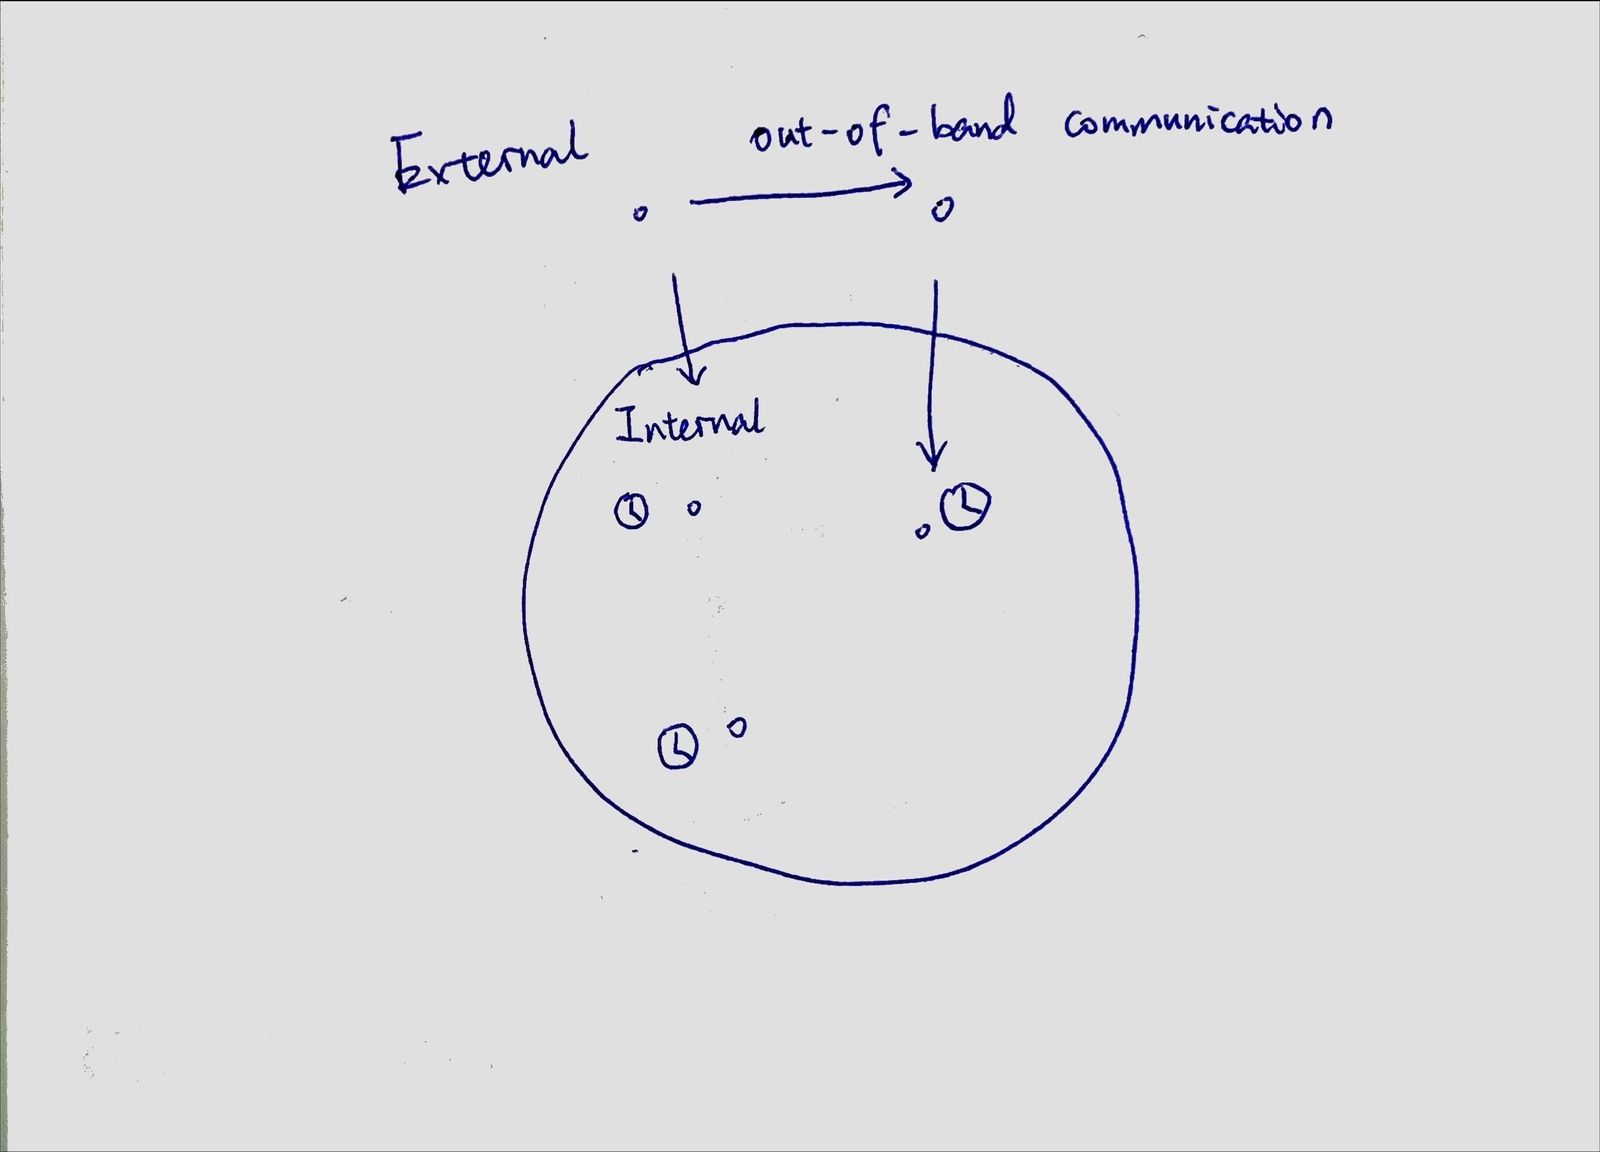 External
out-of-band communication
Internal